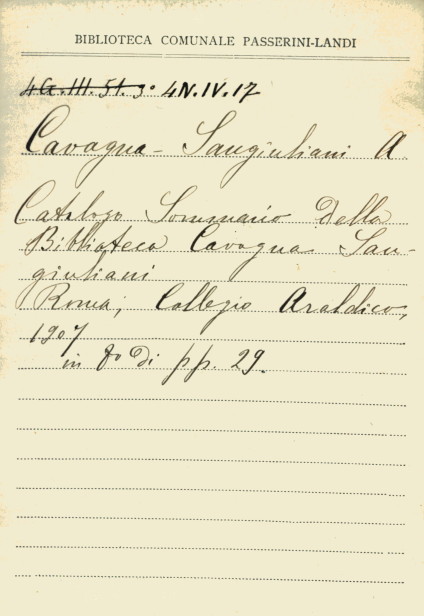 BIBLIOTECA COMUNALE PASSERINI-LANDI
4G.III.51.3º 4N.IV.17
Cavagna-Sangiuliani A.
Catalogo Sommario della
Biblioteca Cavagna San-
giuliani
Roma, Collegio Araldico,
1907
in 8º di pp. 29.